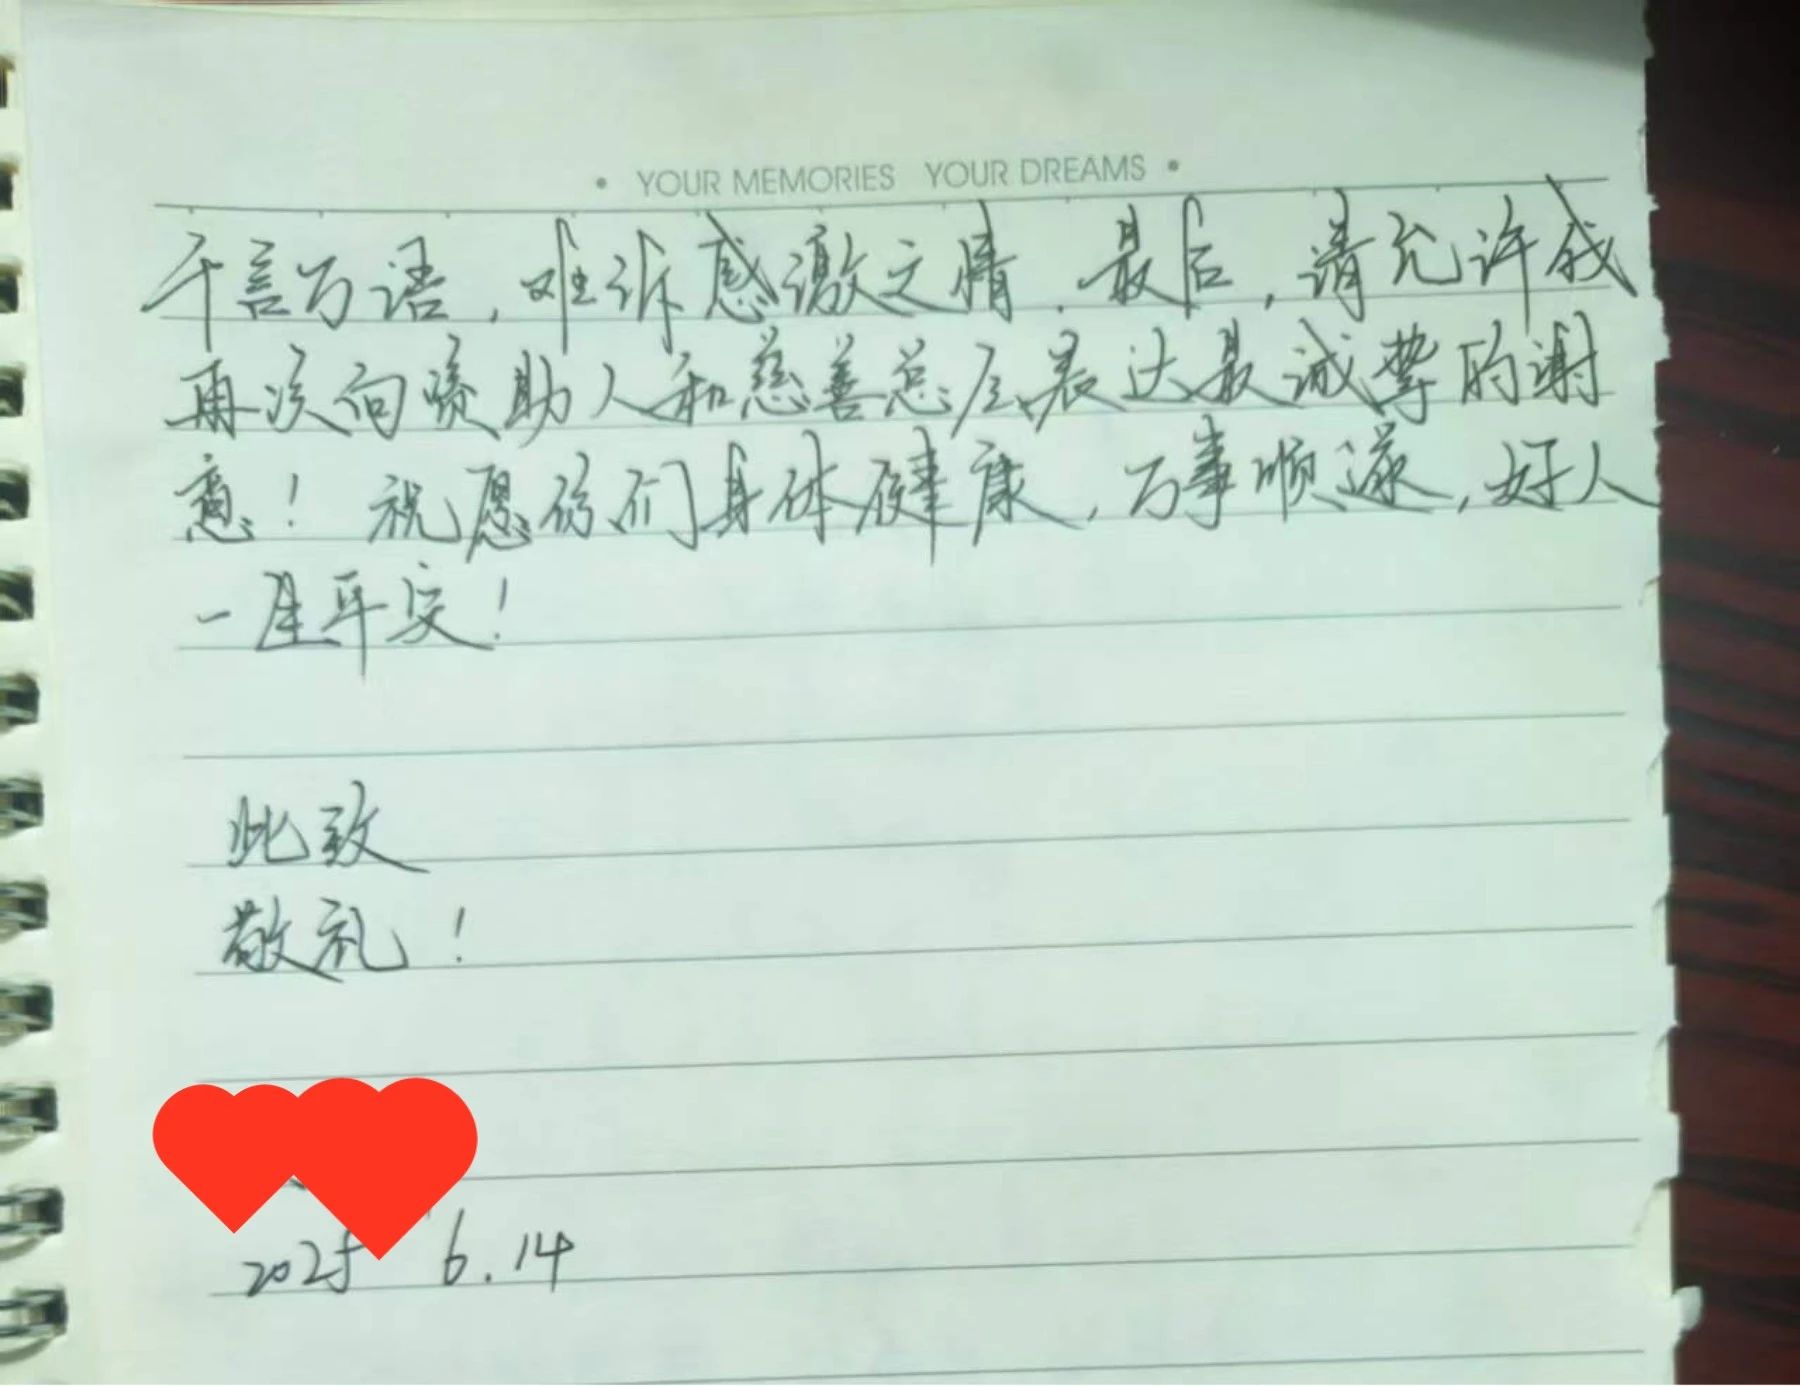 • YOUR MEMORIES YOUR DREAMS •
千言万语，难诉感谢之情．最后，请允许我
再次向资助人和慈善总会表达最诚挚的谢
意！祝愿你们身体健康，万事顺遂，好人
一生平安！
此致
敬礼！
2025 6.14